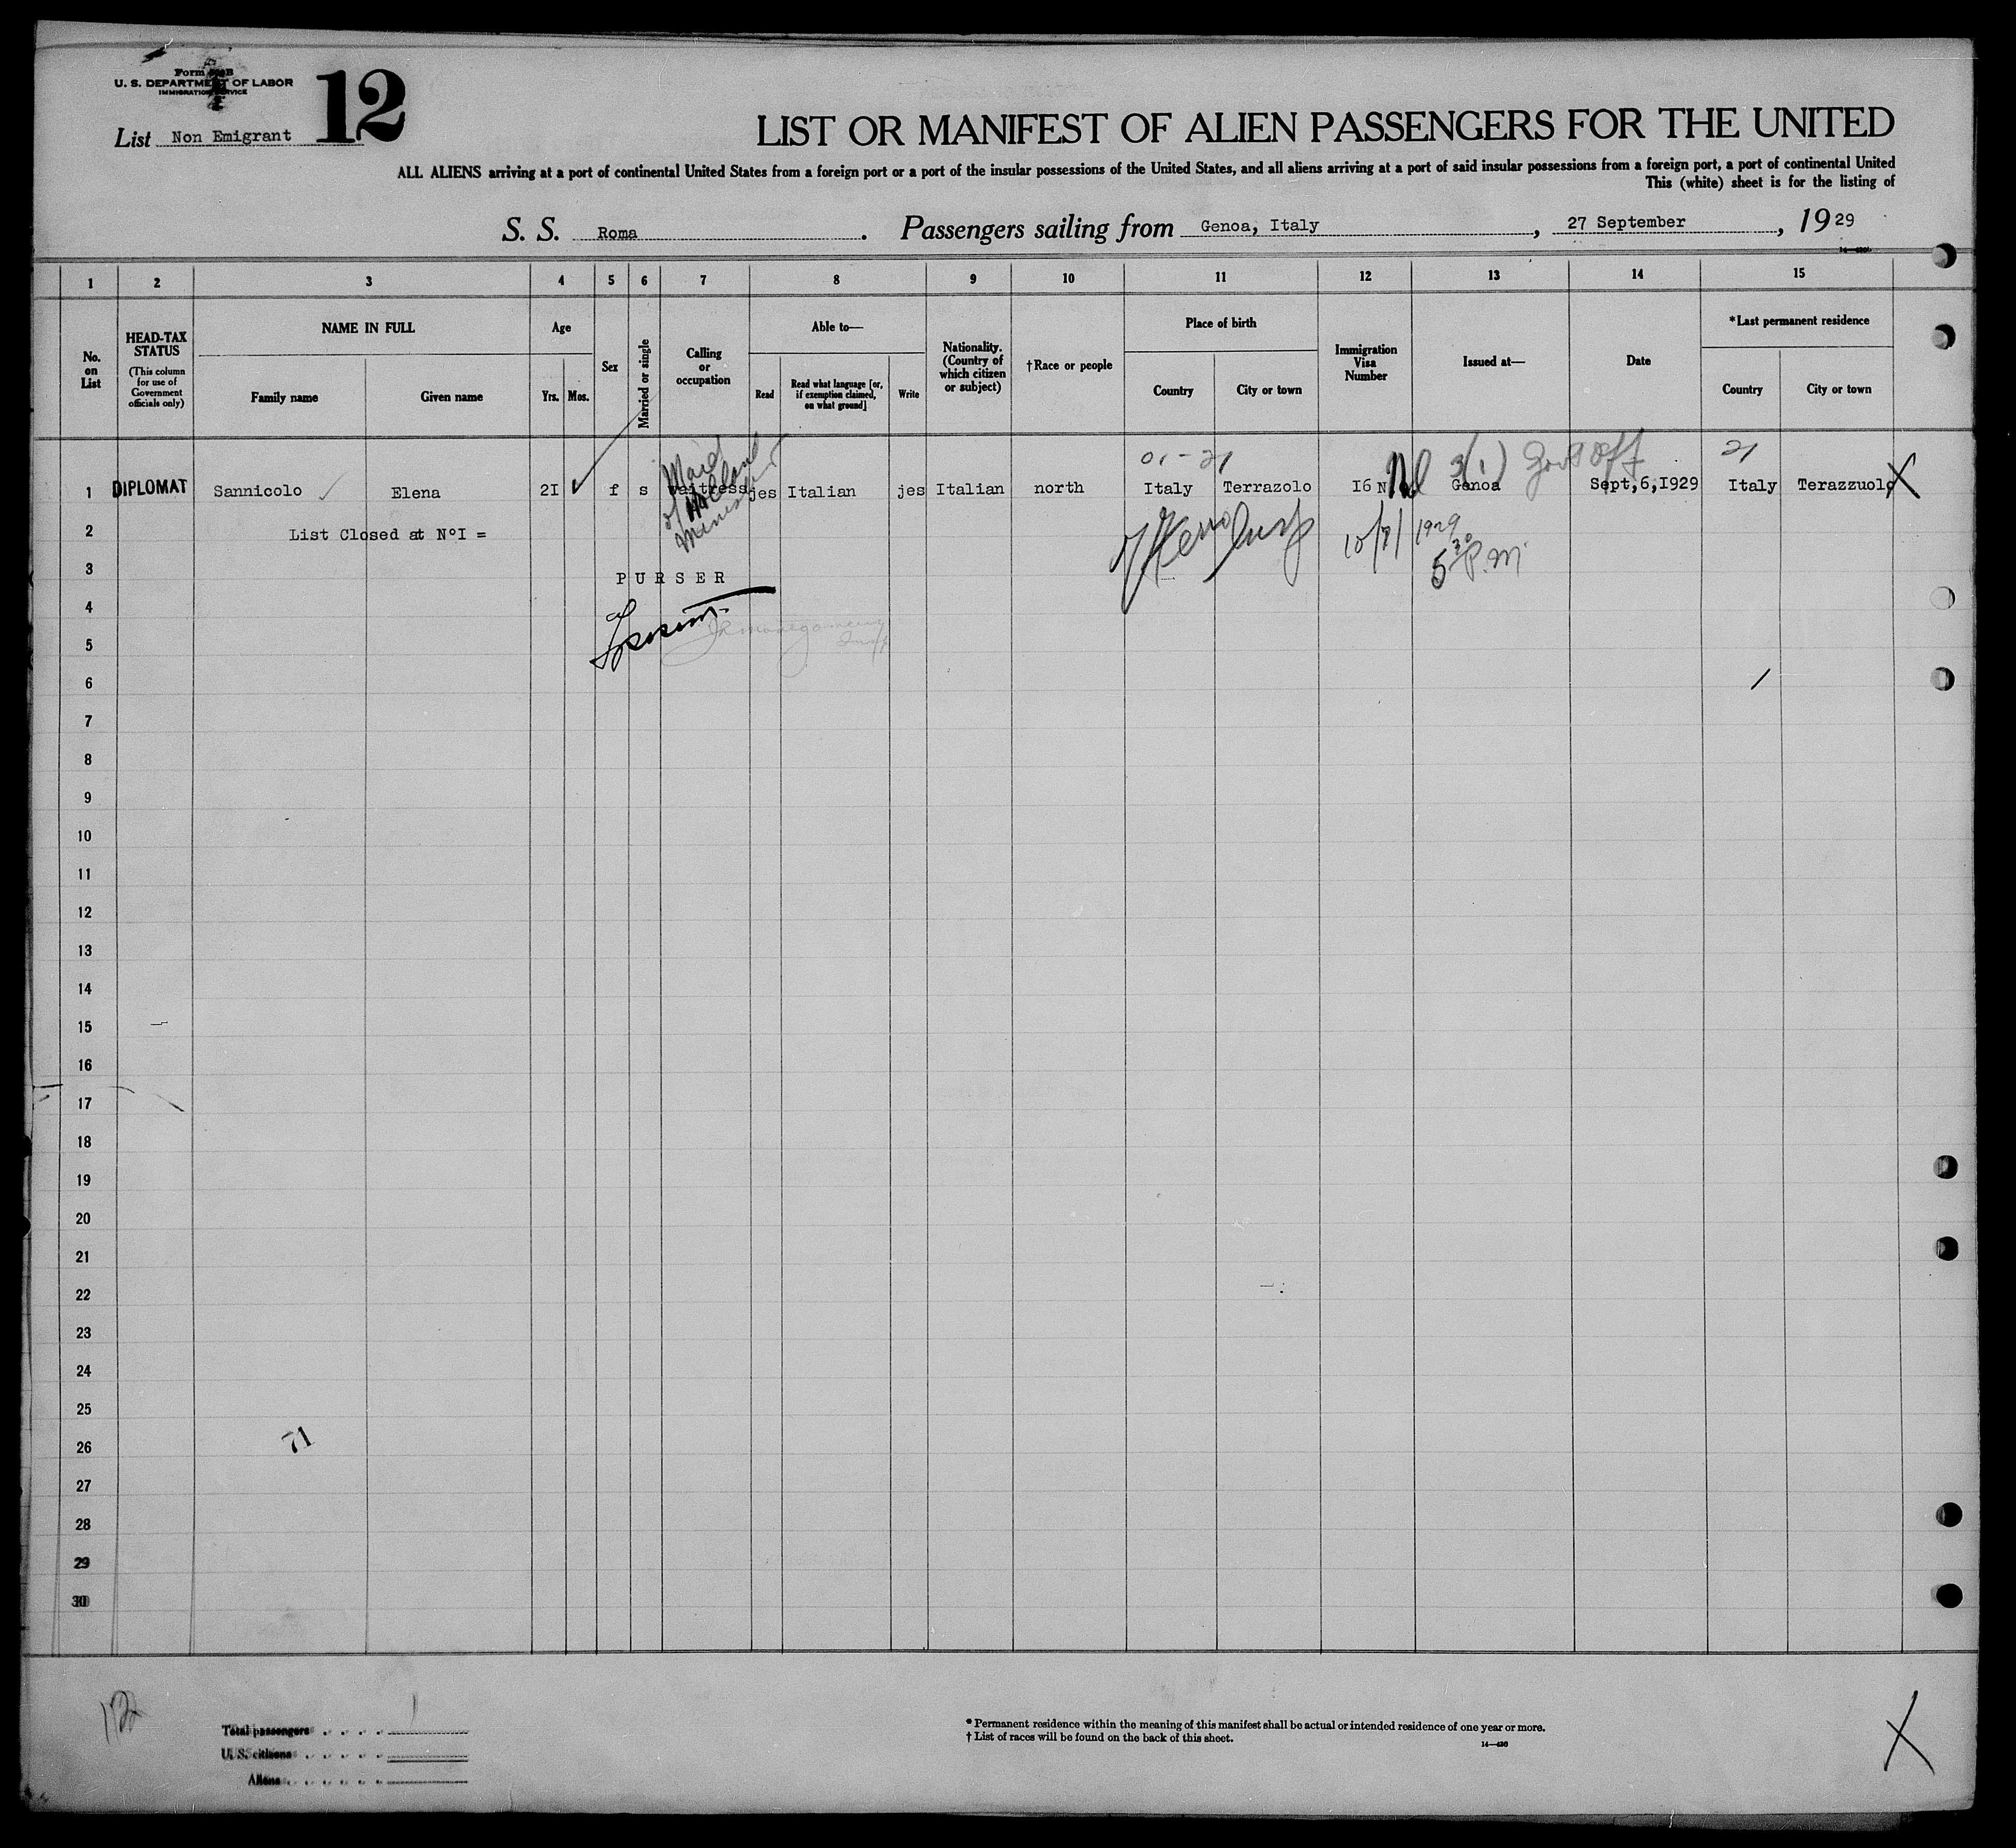 Form
U. S. DEPARTMENT OF LABOR
IMMIGRATION SERVICE
12
List Non Emigrant
LIST OR MANIFEST OF ALIEN PASSENGERS FOR THE UNITED
ALL ALIENS arriving at a port of continental United States from a foreign port or a port of the insular possessions of the United States, and all aliens arriving at a port of said insular possessions from a foreign port, a port of continental United
This (white) sheet is for the listing of
S. S. Roma. Passengers sailing from Genoa, Italy, 27 September, 1929
1 2 3 4 5 6 7 8 9 10 11 12 13 14 15
No. on List
HEAD-TAX STATUS
(This column for use of Government officials only)
NAME IN FULL
Family name
Given name
Age
Yrs. Mos.
Sex
Married or single
Calling or occupation
Able to—
Read
Read what language [or, if exemption claimed, on what ground]
Write
Nationality. (Country of which citizen or subject)
†Race or people
Place of birth
Country
City or town
Immigration Visa Number
Issued at—
Date
*Last permanent residence
Country
City or town
Maid
of Holland
Minister
01-21
3(1) Govt Off
21
1 DIPLOMAT Sannicolo Elena 2I f s waitress jes Italian jes Italian north Italy Terrazolo I6 N Genoa Sept,6,I929 Italy Terazzuolo X
2 List Closed at NºI =
10/7/1929
5 30 P.M.
3 PURSER
4
5
6
7
8
9
10
11
12
13
14
15
16
17
18
19
20
21
22
23
24
25
26
71
27
28
29
30
Total passengers 1
U. S. citizens
Aliens
* Permanent residence within the meaning of this manifest shall be actual or intended residence of one year or more.
† List of races will be found on the back of this sheet.
14—430
X